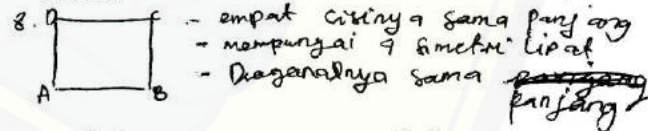 8. D C - empat cisinya sama panjang
- mempunyai 4 simetri lipat
- Diagonalnya sama panjang
A B panjang